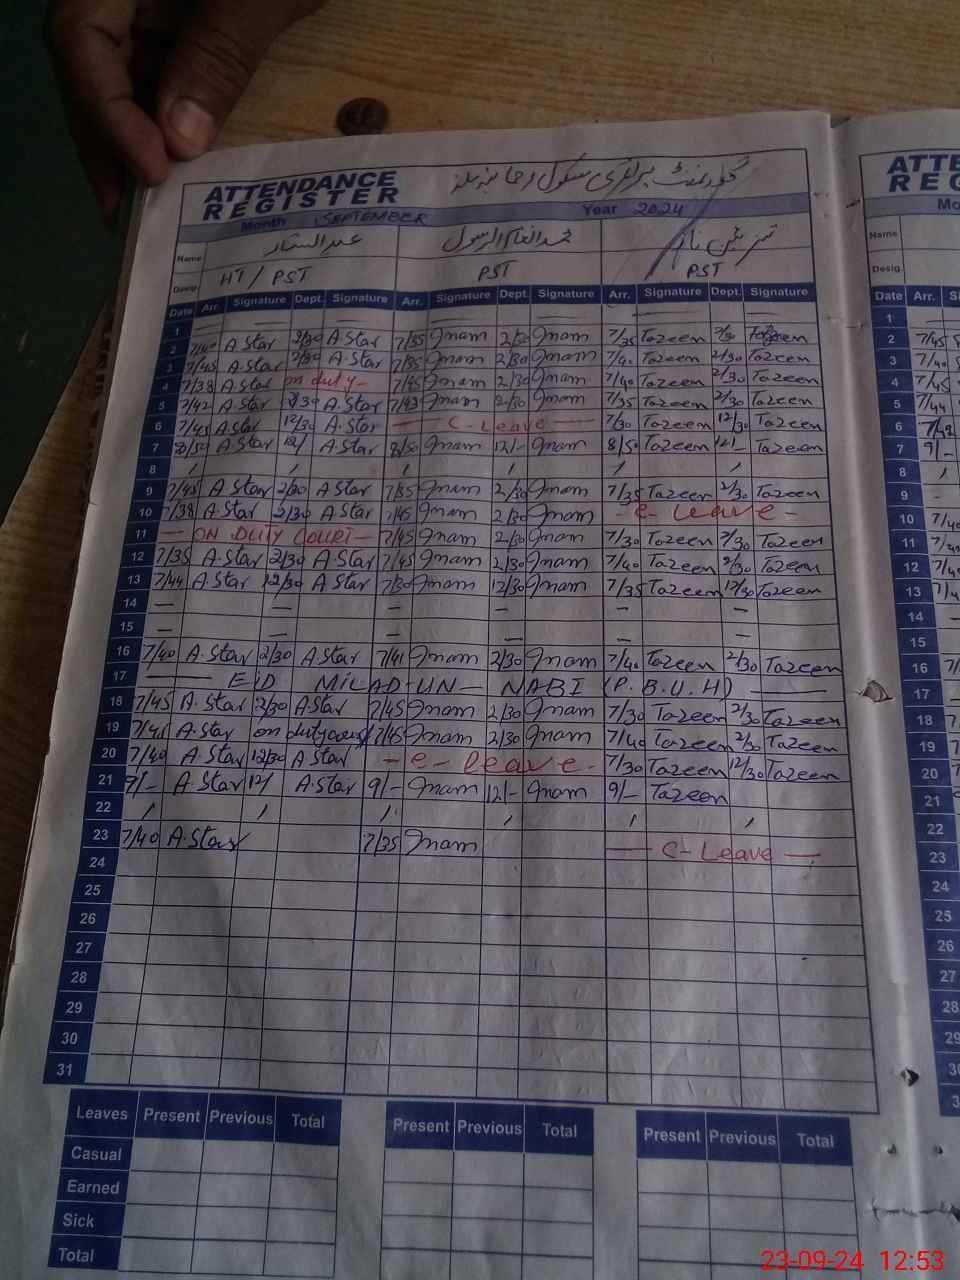 ATTENDANCE REGISTER گورنمنٹ پرائمری سکول
Month SEPTEMBER Year 2024
Name عبدالستار محمد انعام الرسول
Desig. HT/PST PST PST
Date Arr. Signature Dept. Signature Arr. Signature Dept. Signature Arr. Signature Dept. Signature
1 — — — — — —
2 7/40 A Star 2/30 A Star 7/35 Inam 2/30 Inam 7/35 Tazeen 2/30 Tazeen
3 7/45 A Star 2/30 A Star 7/35 Inam 2/30 Inam 7/40 Tazeen 2/30 Tazeen
4 7/38 A Star on duty - 7/45 Inam 2/30 Inam 7/40 Tazeen 2/30 Tazeen
5 7/42 A.Star 2/30 A.Star 7/43 Inam 2/30 Inam 7/35 Tazeen 2/30 Tazeen
6 7/45 A Star 12/30 A.Star — C-Leave — 7/30 Tazeen 12/30 Tazeen
7 8/50 A Star 12/ A Star 8/50 Inam 12/- Inam 8/50 Tazeen 12/- Tazeen
8 / / / / / /
9 7/45 A Star 2/30 A Star 7/35 Inam 2/30 Inam 7/35 Tazeen 2/30 Tazeen
10 7/38 A Star 2/30 A Star 7/45 Inam 2/30 Inam - e- Leave -
11 — ON DUTY COURT — 7/45 Inam 2/30 Inam 7/30 Tazeen 2/30 Tazeen
12 7/35 A Star 2/30 A.Star 7/45 Inam 2/30 Inam 7/40 Tazeen 2/30 Tazeen
13 7/44 A Star 12/30 A Star 7/30 Inam 12/30 Inam 7/35 Tazeen 12/30 Tazeen
14 — — — — — —
15 — — — — — —
16 7/40 A.Star 2/30 A Star 7/41 Inam 2/30 Inam 7/40 Tazeen 2/30 Tazeen
17 — EID MILAD-UN- NABI (P.B.U.H) —
18 7/45 A Star 2/30 A Star 7/45 Inam 2/30 Inam 7/30 Tazeen 2/30 Tazeen
19 7/45 A.Star on duty court 7/45 Inam 2/30 Inam 7/40 Tazeen 2/30 Tazeen
20 7/40 A Star 12/30 A Star - e- leave - 7/30 Tazeen 12/30 Tazeen
21 9/- A Star 12/ A.Star 9/- Inam 12/- Inam 9/- Tazeen
22 / / / / / /
23 7/40 A.Star 7/35 Inam — C-Leave —
24
25
26
27
28
29
30
31
Leaves Present Previous Total Present Previous Total Present Previous Total
Casual
Earned
Sick
Total
ATTE
REG
Mo
Name
Desig.
Date Arr. Si
1 —
2 7/45
3 7/40
4 7/45
5 7/44
6 7/42
7 9/-
8 /
9 -
10 7/40
11
12
13
14 —
15
16
17
18
19
20
21
22
23
24
25
26
27
28
29
23-09-24 12:53